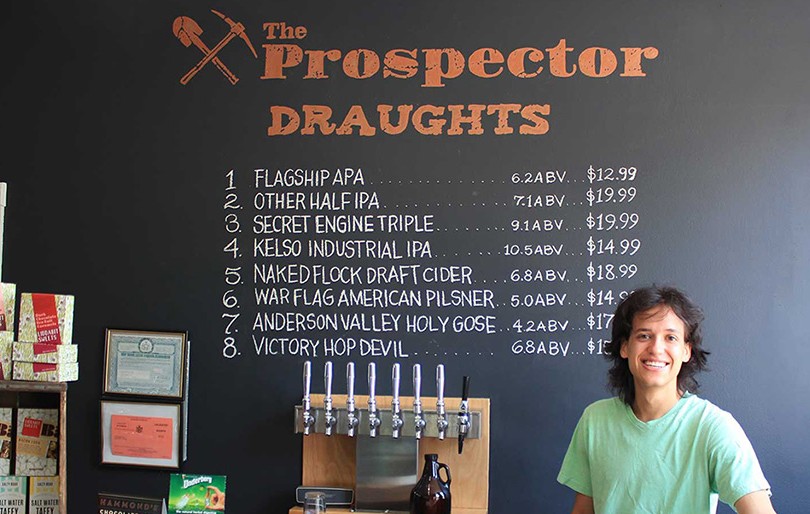 The
Prospector
DRAUGHTS
1 FLAGSHIP APA . . . . . . . . . . . . . . . . . 6.2 ABV . . . $12.99
2. OTHER HALF IPA . . . . . . . . . . . . . . . 7.1 ABV . . . $19.99
3. SECRET ENGINE TRIPLE . . . . . . . . . 9.1 ABV . . . $19.99
4. KELSO INDUSTRIAL IPA . . . . . . . . . 10.5 ABV . . . $14.99
5. NAKED FLOCK DRAFT CIDER . . . . 6.8 ABV . . . $18.99
6. WAR FLAG AMERICAN PILSNER . . 5.0 ABV . . . $14.
7. ANDERSON VALLEY HOLY GOSE . . . 4.2 ABV . . . $17
8. VICTORY HOP DEVIL . . . . . . . . . . . . 6.8 ABV . . . $1
Underberg
HAMMOND'S
SALT WATER
TAFFY
SALT WATER
TAFFY